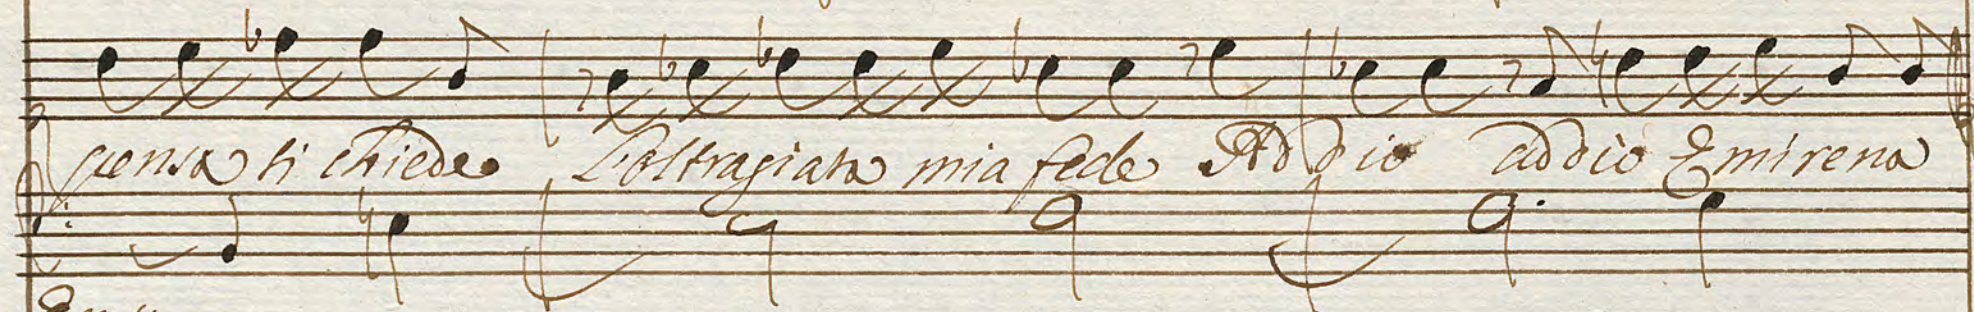 pensa ti chiede L'oltragiata mia fede Addio addio Emirena